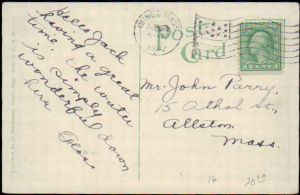 Post
Card
Hello Jack
having a great
time. the water
is simply
wonderful down
here
Mr. John Parry.
15 Athol St.,
Allston
Mass.
16
20.00